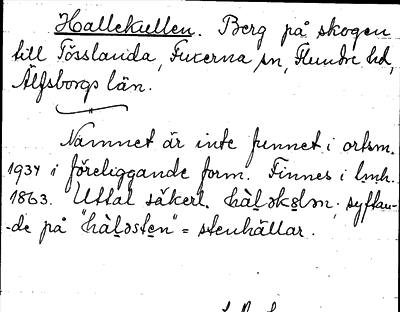 Hallekullen. Berg på skogen
till Tösslanda, Fuxerna sn, Flundre hd,
Älfsborgs län.
Namnet är inte funnet i ortsn.
1934 i föreliggande form. Finnes i lmh.
1863. Uttal säkerl. hàḷəkɞlən, syftan-
-de på "hàḷəstęn" = stenhällar.